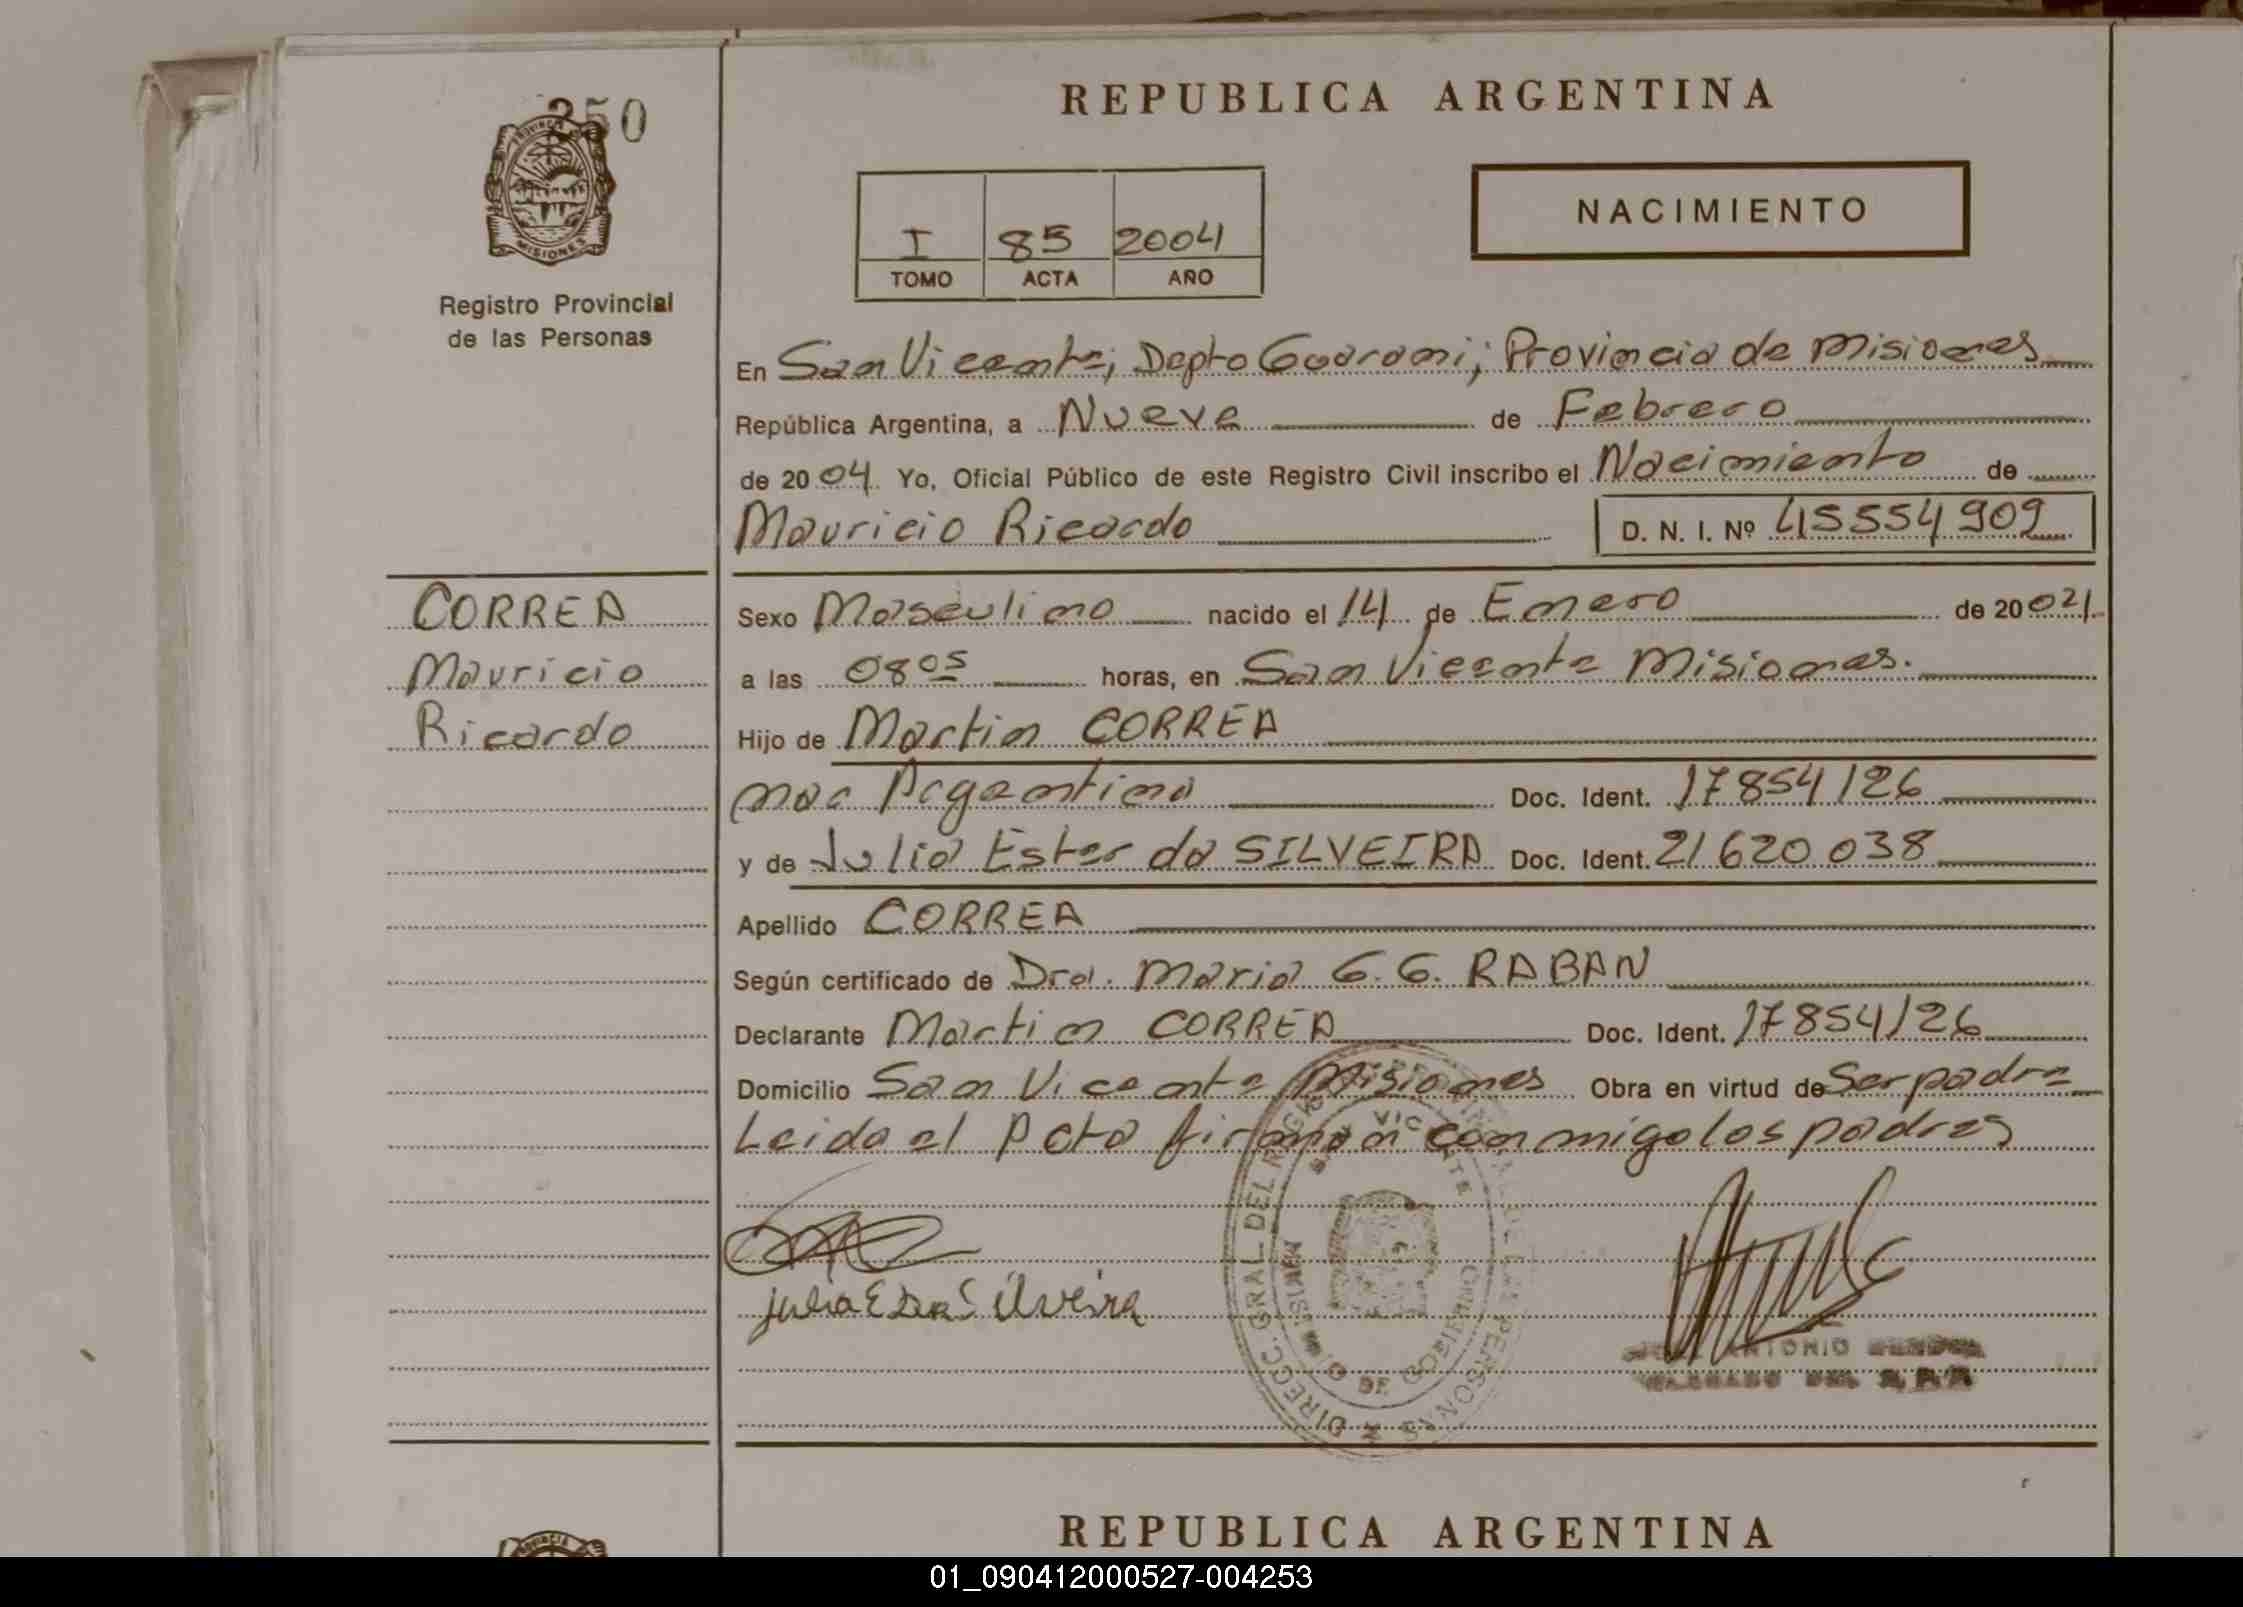 350
PROVINCIA
MISIONES
Registro Provincial
de las Personas
REPUBLICA ARGENTINA
NACIMIENTO
I 85 2004
TOMO ACTA AÑO
En San Vicente, Depto Guarani, Provincia de Misiones
República Argentina, a Nueve de Febrero
de 2004 Yo, Oficial Público de este Registro Civil inscribo el Nacimiento de
Mauricio Ricardo D. N. I. Nº 45554909
CORREA
Mauricio
Ricardo
Sexo Masculino nacido el 14 de Enero de 20 04
a las 08 05 horas, en San Vicente Misiones.
Hijo de Martin CORREA
nac Argentina Doc. Ident. 17854126
y de Julia Ester da SILVEIRA Doc. Ident. 21620038
Apellido CORREA
Según certificado de Dra. Maria G. G. RABAN
Declarante Martin CORREA Doc. Ident. 17854126
Domicilio San Vicente Misiones Obra en virtud de Ser padre
Leida el Acta firman conmigo los padres
Julia E Da Silveira
DIRECC. GRAL DEL REGIS PERSONAS
SAN VICENTE
MINISTERIO DE GOBIERNO
ANTONIO
DEL R.P.P.
REPUBLICA ARGENTINA
01_090412000527-004253